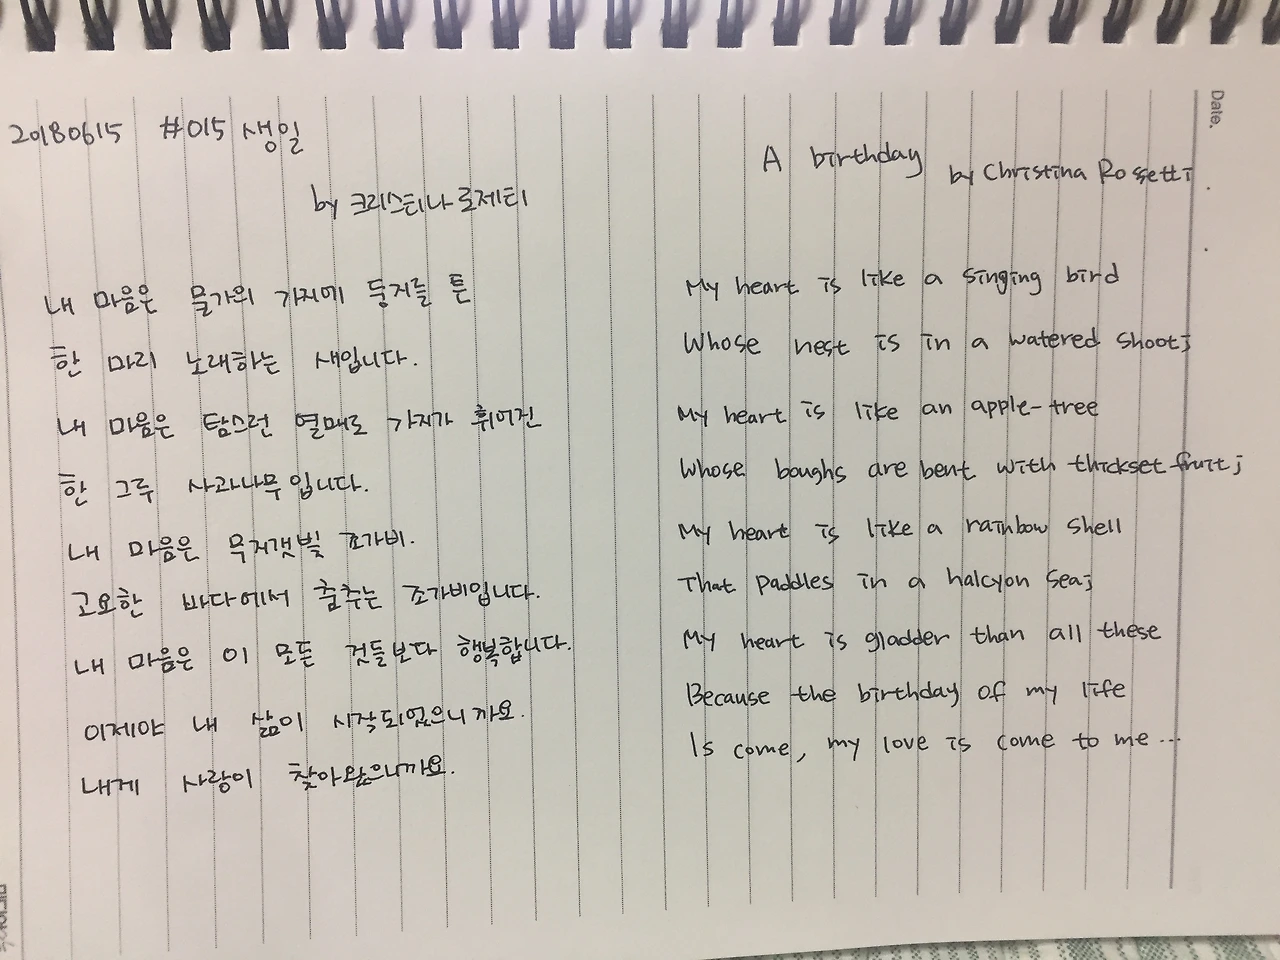 Date.
20180615 #015 생일
by 크리스티나 로제티
내 마음은 물가의 가지에 둥지를 튼
한 마리 노래하는 새입니다.
내 마음은 탐스런 열매로 가지가 휘어진
한 그루 사과나무입니다.
내 마음은 무지갯빛 조가비.
고요한 바다에서 춤추는 조가비입니다.
내 마음은 이 모든 것들보다 행복합니다.
이제야 내 삶이 시작되었으니까요.
내게 사랑이 찾아왔으니까요.
A birthday
by Christina Rossetti
My heart is like a singing bird
Whose nest is in a watered shoot;
My heart is like an apple-tree
Whose boughs are bent with thickset fruit;
My heart is like a rainbow shell
That paddles in a halcyon sea;
My heart is gladder than all these
Because the birthday of my life
Is come, my love is come to me...